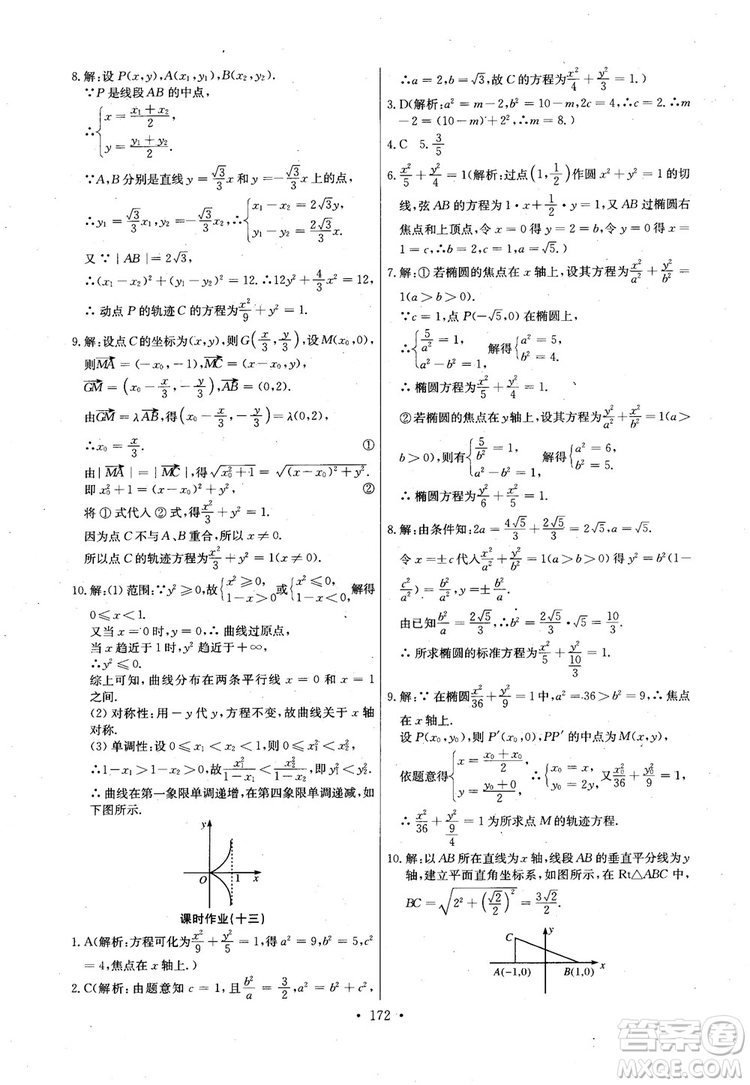 8. 解:设 P(x,y),A(x₁,y₁),B(x₂,y₂).
∵P 是线段 AB 的中点,
∴{x=(x₁+x₂)/2,
y=(y₁+y₂)/2.
∵A、B 分别是直线 y=(√3/3)x 和 y=-(√3/3)x 上的点,
∴y₁=(√3/3)x₁,y₂=-(√3/3)x₂.∴{x₁-x₂=2√3y,
y₁-y₂=(2√3/3)x.
又∵|AB|=2√3,
∴(x₁-x₂)²+(y₁-y₂)²=12.∴12y²+(4/3)x²=12,
∴动点 P 的轨迹 C 的方程为x²/9+y²=1.
9. 解:设点 C 的坐标为(x,y),则 G(x/3,y/3),设 M(x₀,0),
则MA=(-x₀,-1),MC=(x-x₀,y),
GM=(x₀-x/3,-y/3),AB=(0,2).
由GM=λAB,得(x₀-x/3,-y/3)=λ(0,2),
∴x₀=x/3. ①
由|MA|=|MC|,得√(x₀²+1)=√((x-x₀)²+y²).
即 x₀²+1=(x-x₀)²+y², ②
将 ① 式代入 ② 式,得x²/3+y²=1.
因为点 C 不与 A、B 重合,所以 x≠0.
所以点 C 的轨迹方程为x²/3+y²=1(x≠0).
10. 解:(1) 范围:∵y²≥0,故{x≥0
1-x>0或{x≤0
1-x<0,解得
0≤x<1.
又当 x=0 时,y=0,∴曲线过原点,
当 x 趋近于 1 时,y² 趋近于+∞,
∴y²≥0.
综上可知,曲线分布在两条平行线 x=0 和 x=1
之间.
(2) 对称性:用-y 代 y,方程不变,故曲线关于 x 轴
对称.
(3) 单调性:设 0≤x₁<x₂<1,则有 0≤x₁²<x₂²
∴1-x₁>1-x₂>0,∴x₁²/(1-x₁)<x₂²/(1-x₂),
∴曲线在第一象限单调递增,在第四象限单调递减,如
下图所示.
y
O 1 x
课时作业(十三)
1. A(解析:方程可化为x²/9+y²/5=1,得 a²=9,b²=5,c²
=4,焦点在 x 轴上.)
2. C(解析:由题意知 c=1,且b²/a=3/2,a²=b²+c²,
∴a=2,b=√3,故 C 的方程为x²/4+y²/3=1.)
3. D(解析:a²=m-2,b²=10-m,c=2,c²=4,∴m
-2=(10-m)+4,∴m=8.)
4. C 5. 3/5
6. x²/5+y²/4=1(解析:过点(1,1/2)作圆 x²+y²=1 的切
线,弦 AB 的方程为 1·x+1/2·y=1,又 AB 过椭圆右
焦点和上顶点,令 x=0 得 y=2=b,令 y=0 得 x=
1=c,∴a²=b²+c²=5.)
7. 解:① 若椭圆的焦点在 x 轴上,设其方程为x²/a²+y²/b²=
1(a>b>0).
∵c=1,点 P(-√5,0)在椭圆上,
∴{5/a²=1
a²=b²+1 解得{a²=5,
b²=4.
∴椭圆方程为x²/5+y²/4=1.
② 若椭圆的焦点在 y轴上,设其方程为y²/a²+x²/b²=1(a>
b>0).则有{5/b²=1
a²=b²+1 解得{a²=6,
b²=5.
∴椭圆方程为y²/6+x²/5=1.
8. 解:由条件知:2a=4√5/3+2√5/3=2√5,∴a=√5.
令 x=±c 代入椭圆x²/a²+y²/b²=1(a>b>0)得y²/b²=1-
c²/a²=b²/a²,∴y=±b²/a.
由已知b²/a=2√5/3,∴b²=2√5/3·√5=10/3.
∴所求椭圆的标准方程为x²/5+y²/(10/3)=1.
9. 解:∵在椭圆x²/36+y²/9=1 中,∵a²=36>b²=9,∴焦点
在 x 轴上.
设 P(x₀,y₀),则 P′(x₀,0),PP′的中点为 M(x,y),
依题意得{x=(x₀+x₀)/2
y=(y₀+0)/2,∴{x₀=x
y₀=2y,又x₀²/36+y₀²/9=1,
∴x²/36+y²/(9/4)=1 为所求点 M 的轨迹方程.
10. 解:以 AB 所在直线为x 轴,线段 AB 的垂直平分线为y
轴,建立平面直角坐标系,在 Rt△ABC 中,
BC=√(2²+(√2/2)²)=3√2/2.
y
C
A(-1,0) B(1,0) x
· 172 ·
答案圈
MXQE.COM